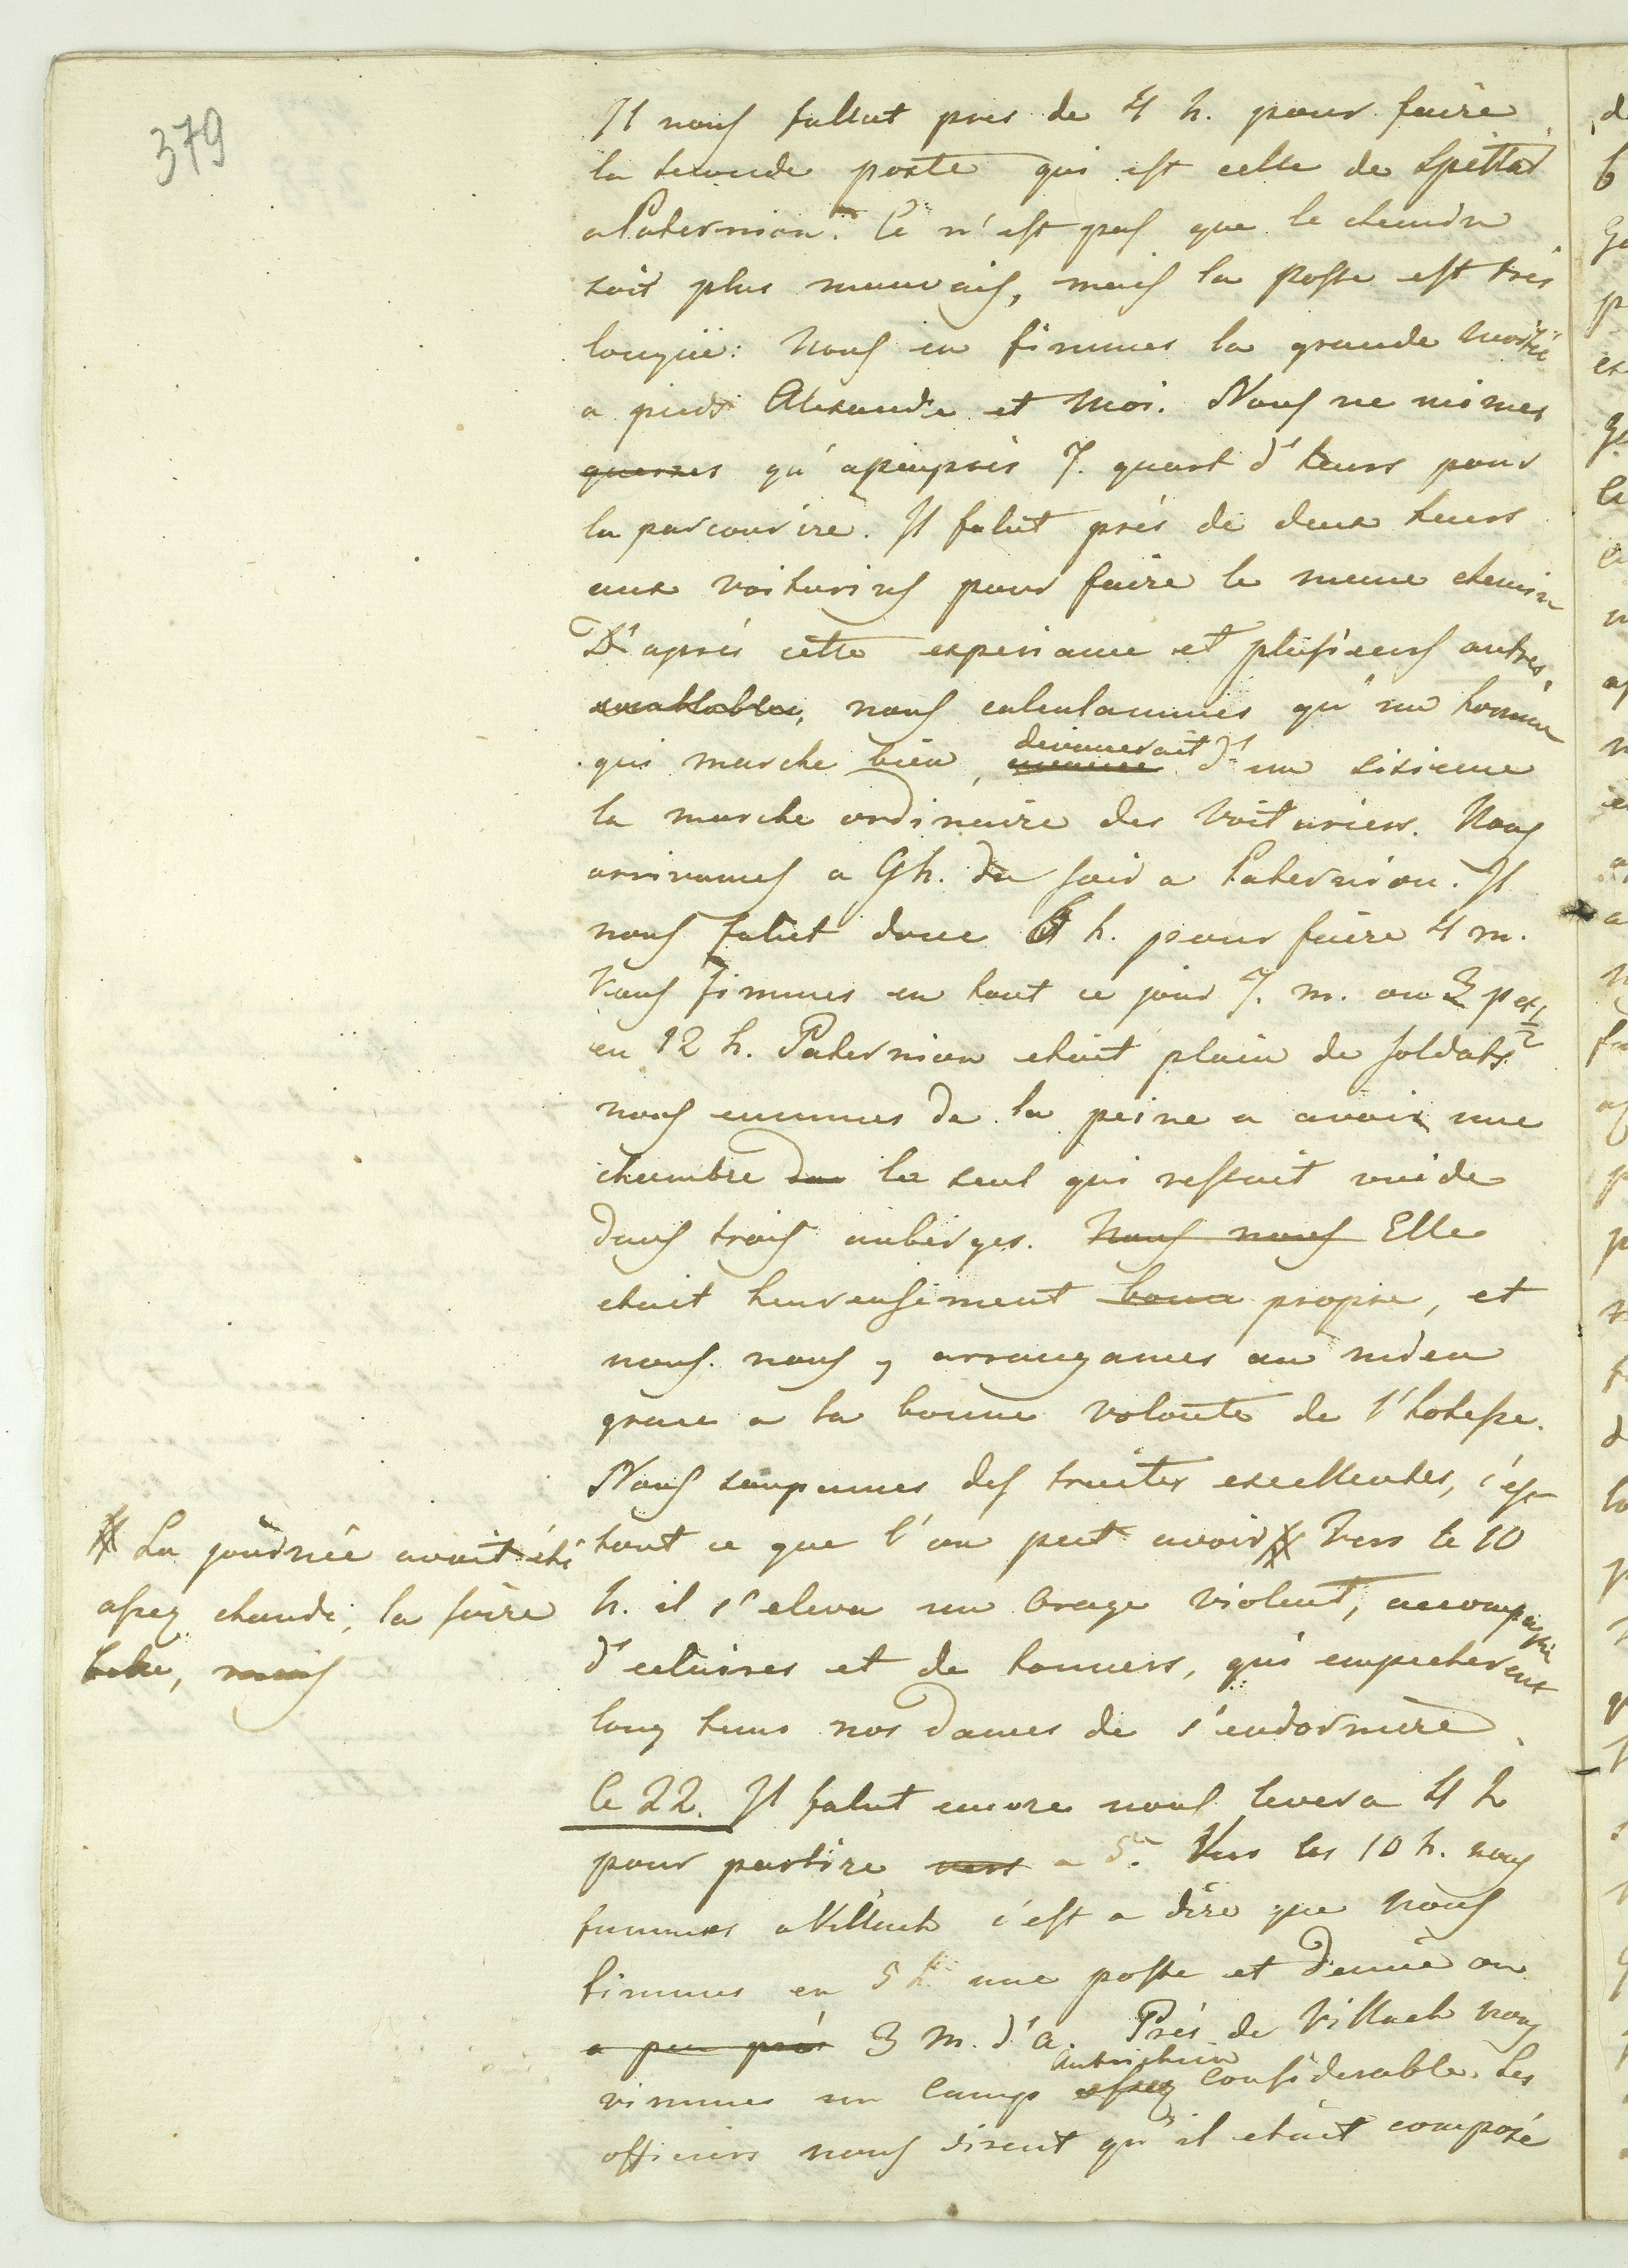 379
Il nous fallut pres de 4 h. pour faire
la seconde poste qui est celle de Spittal
a Paternion. Ce n'est pas que le chemin
soit plus mauvais, mais la poste est très
longüe: Nous en fimmes la grande moitié
a pieds Alexandre et moi. Nous ne mimes
guerres qu'apeuprès 7. quart d'heurs pour
la parcourire. Il falut près de deux heurs
aux voiturins pour faire le meme chemin
D'après cette experiance et plusieurs autres,
semblables, nous calculammes qu'un homme
qui marche bien, devancerait d'un sixieme
la marche ordinaire des voituriers. Nous
arrivames a 9 h. du soir a Paternion. Il
nous falut donc 6 h. pour faire 4 m.
Nous fimmes en tout ce jour 7. m. ou 3 p et 1/2
en 12 h. Paternion etait plain de soldats
nous eummes de la peine a avoir une
chambre la seul qui restait vuide
dans trois auberges. Nous nous Elle
etait heureusement bonne propre, et
nous nous y arrangames au mieu
grace a la bonne volonté de l'hotesse.
Nous soupames des truites excellentes, c'est
tout ce que l'on peut avoir # Vers le 10
h. il s'eleva un orage violent, accompagné
d'eclaires et de tonners, qui empecherent
long tems nos Dames de s'endormire.
# La journée avait été
assez chaude, la soire
belle, mais
le 22. Il falut encore nous lever a 4 h
pour partire vers a 5h. Vers les 10 h. nous
fummes a Villach c'est a dire que nous
fimmes en 5 h. une poste et demie ou
a peu près 3 m. d'a. Près de Villach nous
vimmes un Camp assez Autrichien considerable. Les
officiers nous disent qu'il etait composé